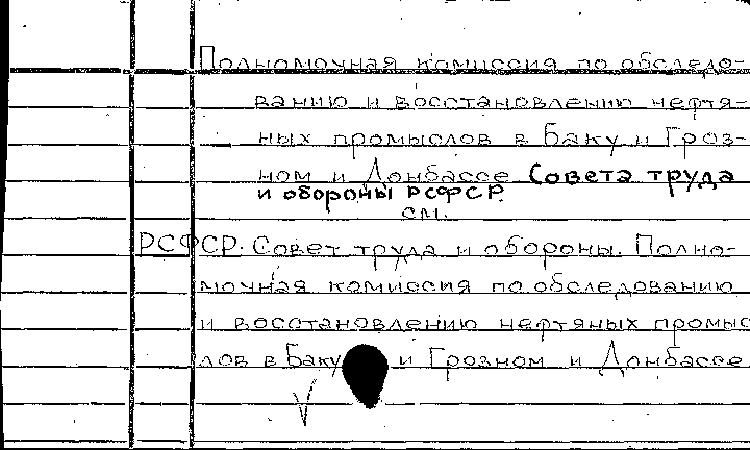 Полномочная комиссия по обследо-
ванию и восстановлению нефтя-
ных промыслов в Баку и Гроз-
ном и Донбассе Совета труда
и обороны РСФСР.
см.
РСФСР. Совет труда и обороны. Полно-
мочная комиссия по обследованию
и восстановлению нефтяных промыс
лов в Баку и Грозном и Донбассе